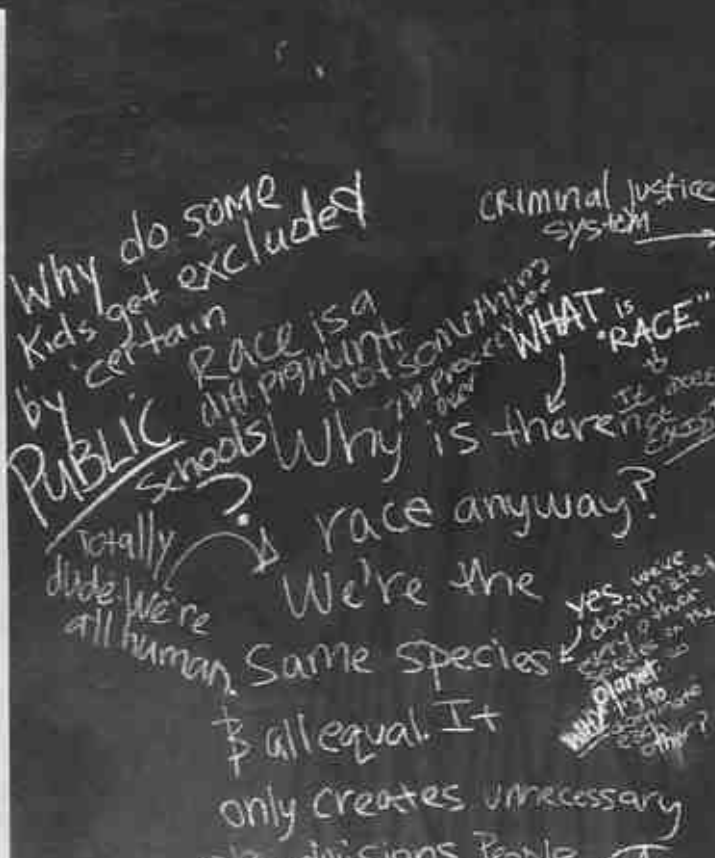 Why do some
Kids get excluded
by certain
PUBLIC
schools
?
criminal justice
system
Race is a
diff pigment
not something
WHAT is
"RACE"
Why is there
race anyway?
We're the
Same species
& all equal. It
only creates unnecessary
divisions People
Totally
dude. We're
all human.
yes. we've
dominated
every other
species on the
planet
WHY try to
dominate
each
other?